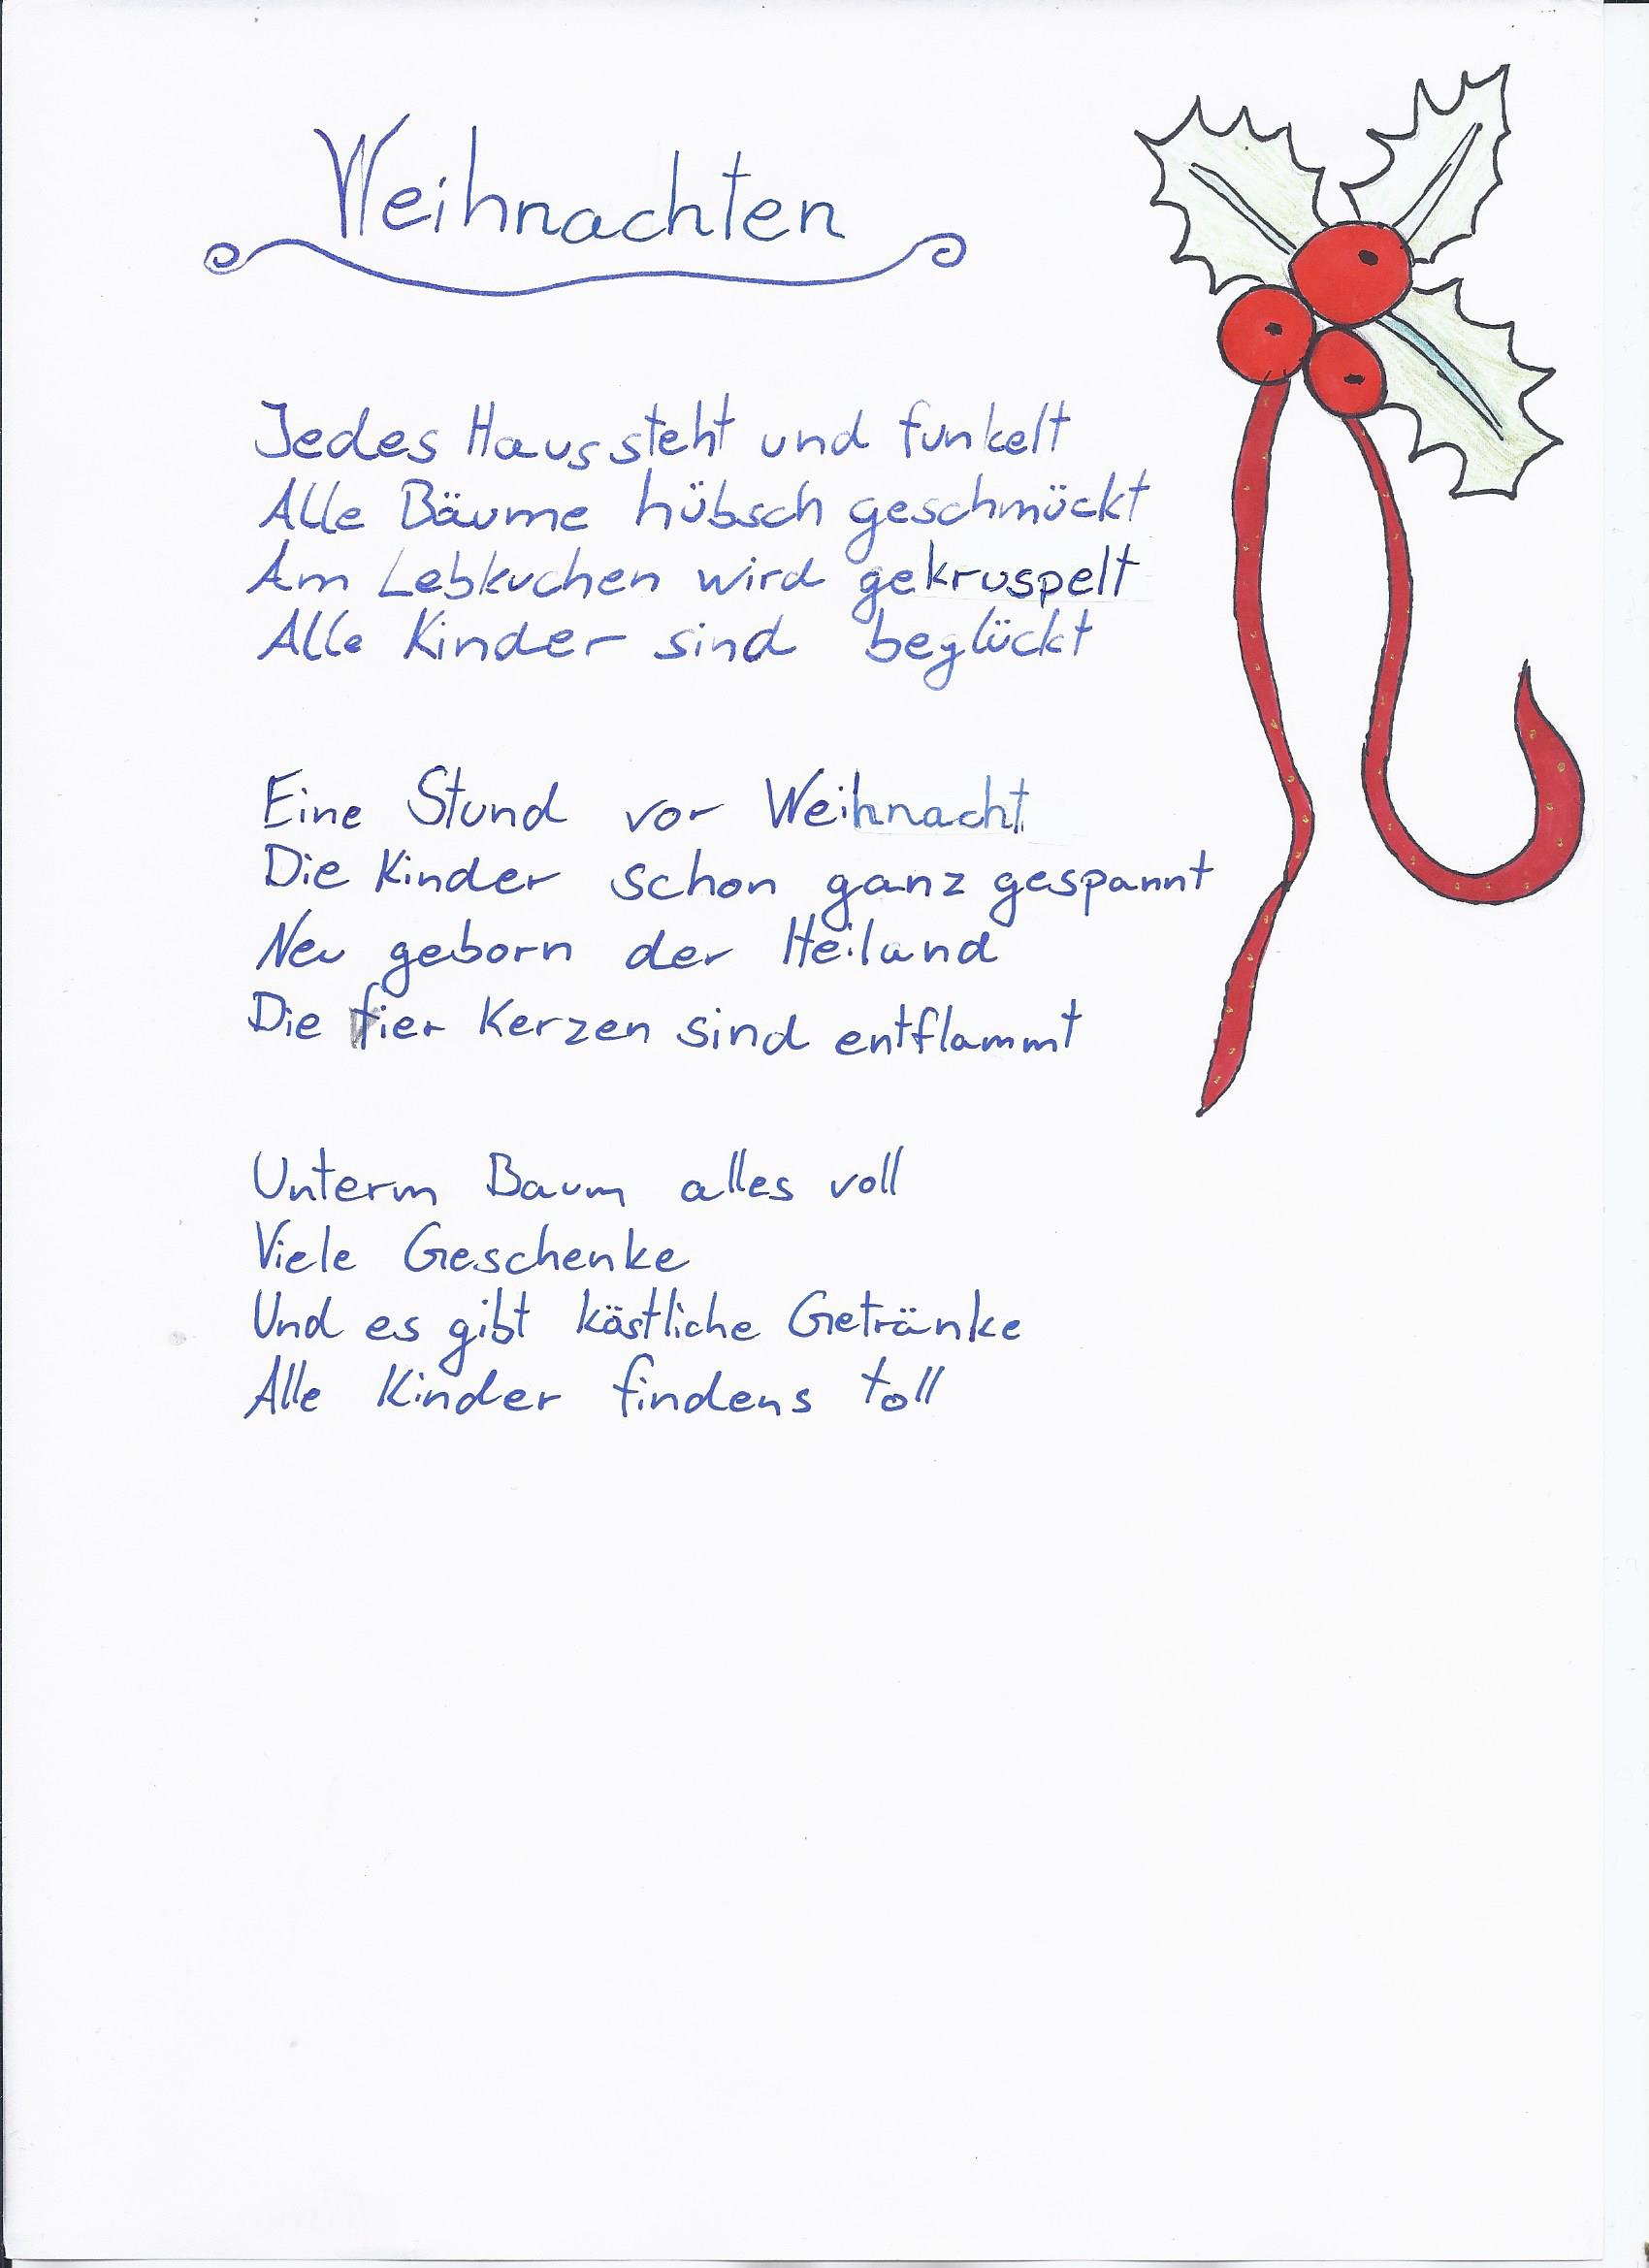 Weihnachten
Jedes Haus steht und funkelt
Alle Bäume hübsch geschmückt
Am Lebkuchen wird gekruspelt
Alle Kinder sind beglückt
Eine Stund vor Weihnacht
Die Kinder schon ganz gespannt
Neu geborn der Heiland
Die fier Kerzen sind entflammt
Unterm Baum alles voll
Viele Geschenke
Und es gibt köstliche Getränke
Alle Kinder findens toll